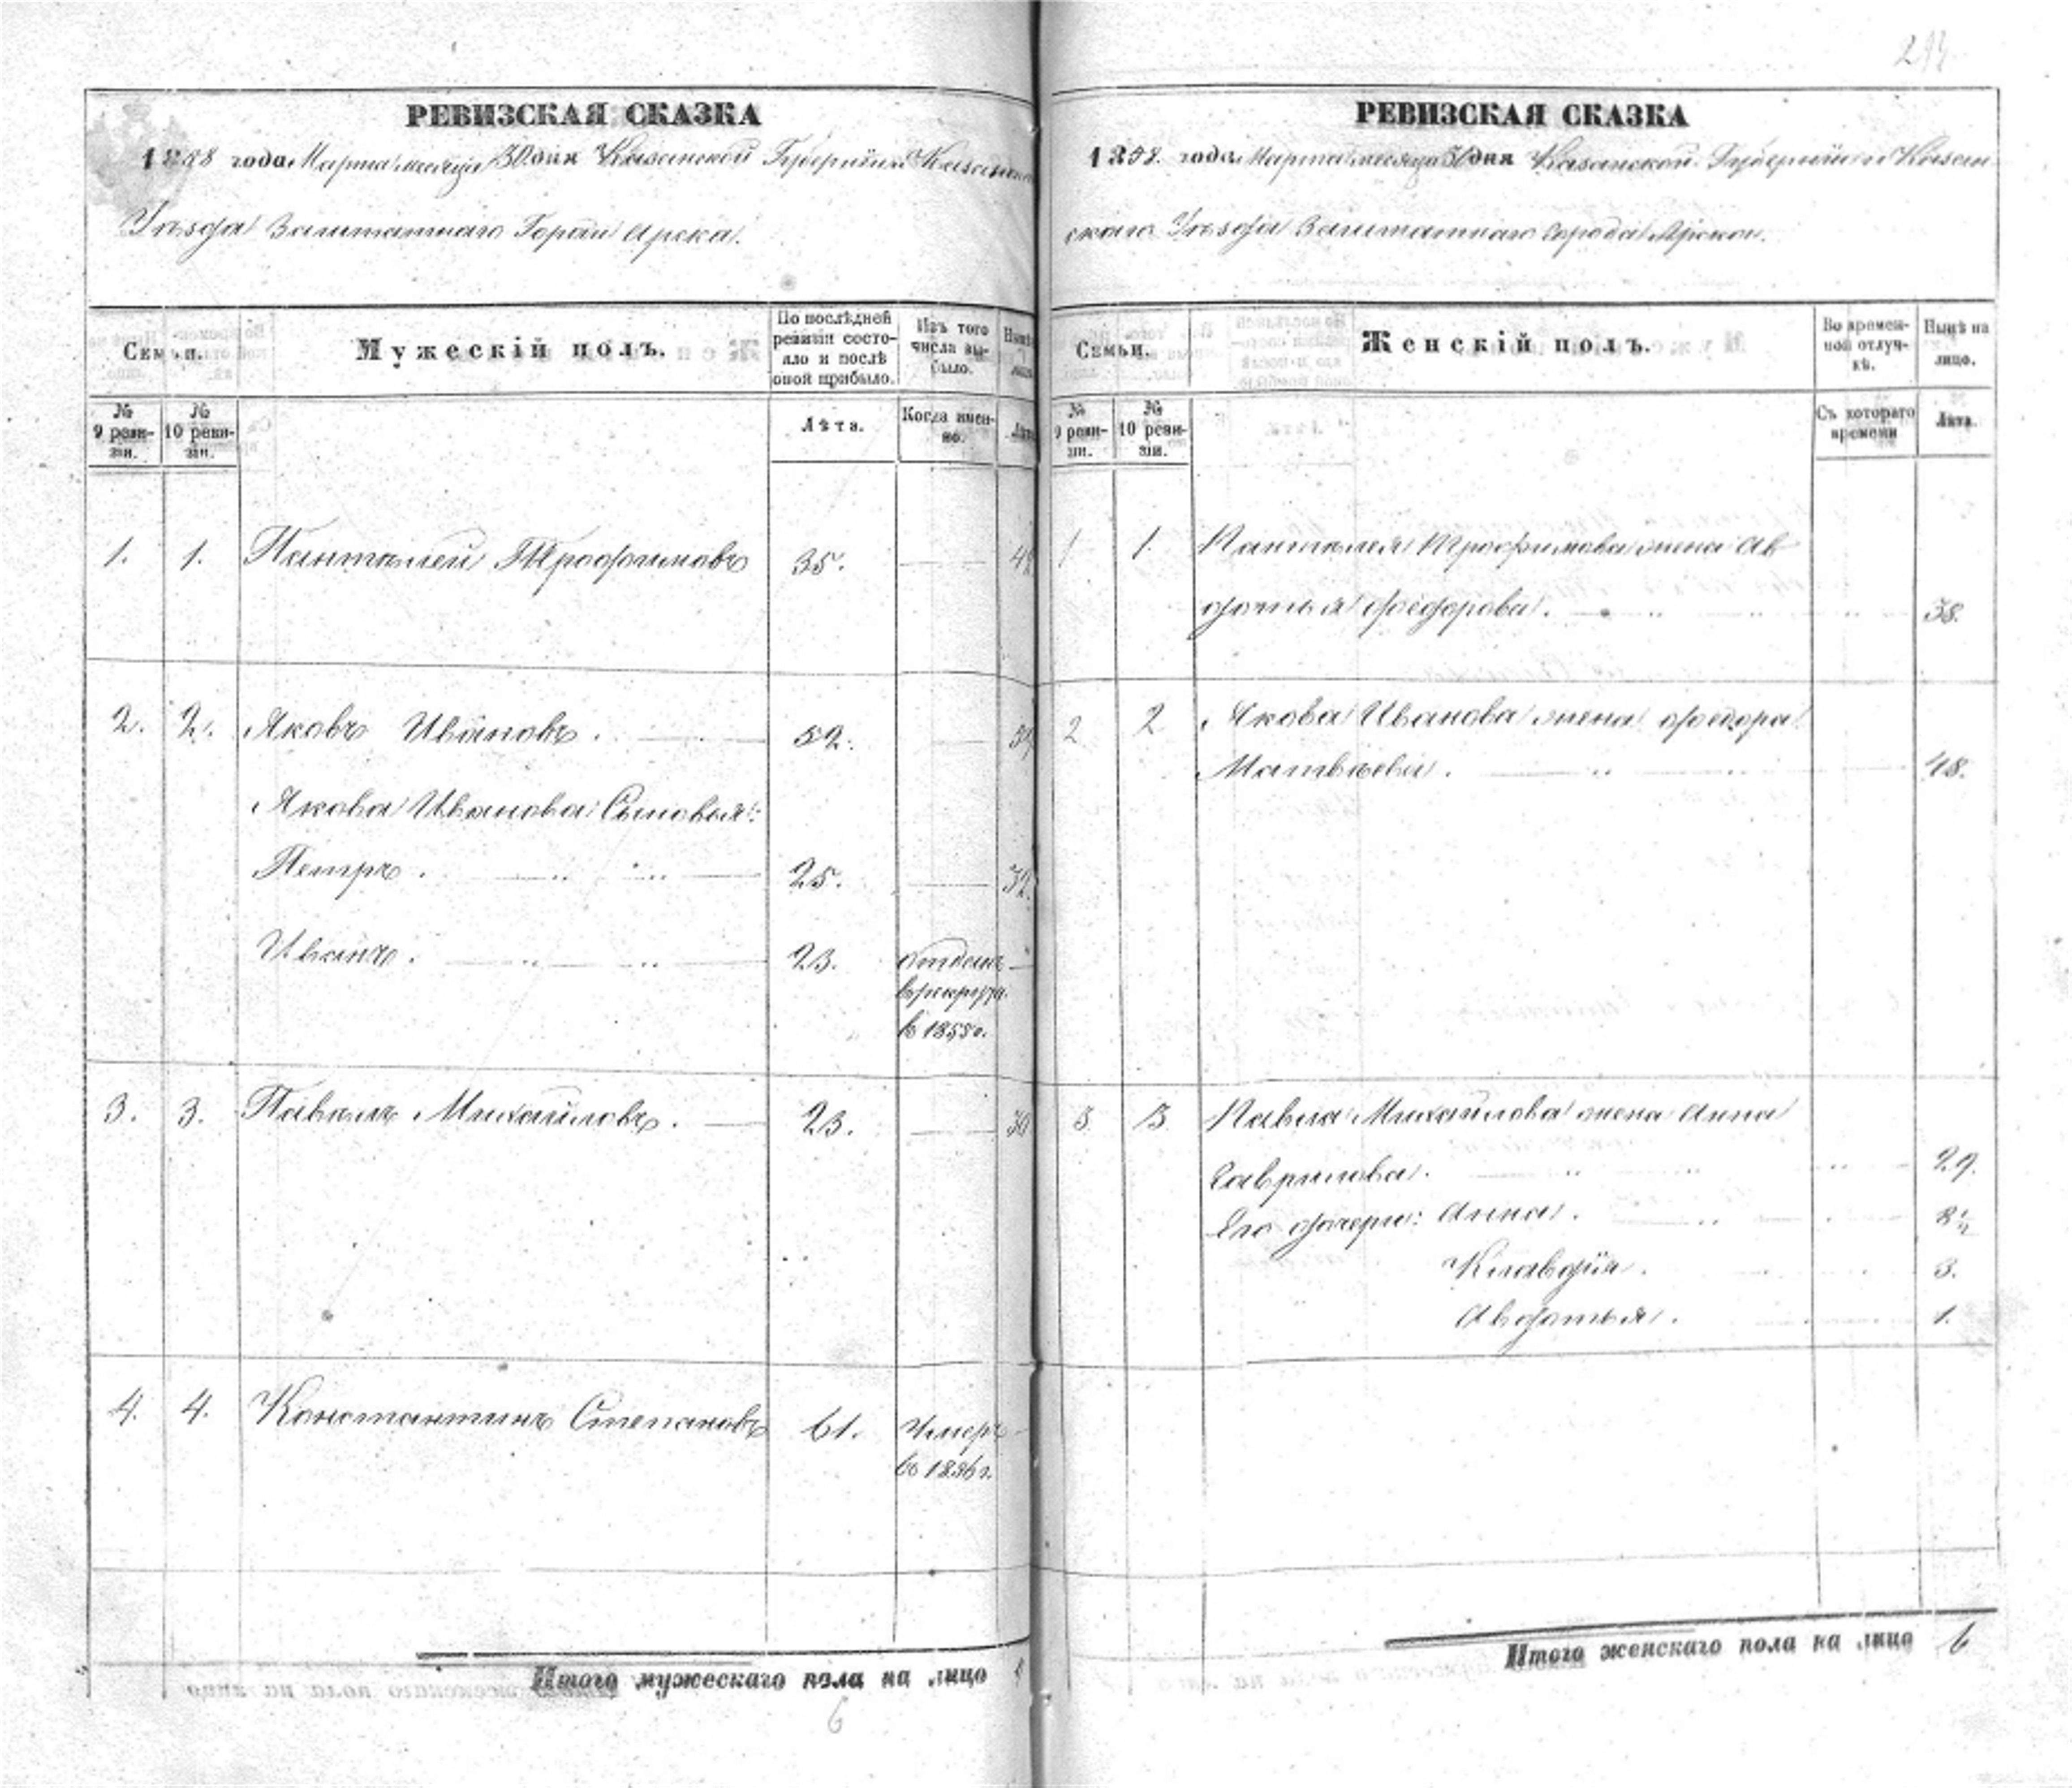 РЕВИЗСКАЯ СКАЗКА
1858 года Марта месяца 30 дня Казанской Губернiи Казанска
Уѣзда Заштатнаго Города Арска.
Семьи.
Мужескій полъ.
По послѣдней ревизіи состояло и послѣ оной прибыло.
Изъ того числа выбыло.
№ 9 ревизіи.
№ 10 ревизіи.
Лѣта.
Когда именно.
Лѣта
1. 1. Пантелей Трофимовъ 35.
2. 2. Яковъ Ивановъ. 52.
Якова Иванова Сыновья:
Петръ. 25. 32.
Иванъ. 23. отданъ
в рекруты
в 1855 г.
3. 3. Павелъ Михайловъ. 23. 30
4. 4. Константинъ Степановъ 61. Умеръ
в 1856 г.
Итого мужескаго пола на лицо
6
РЕВИЗСКАЯ СКАЗКА
1858 года Марта месяца 30 дня Казанской Губернiи Казан
скаго Уѣзда Заштатнаго города Арска.
Семьи.
Женскій полъ.
Во временной отлучкѣ.
Нынѣ на лицо.
№ 9 ревизіи.
№ 10 ревизіи.
Съ котораго времени
Лѣта.
1 1. Пантелея Трофимова жена Ав
дотья Федорова. 38.
2 2 Якова Иванова жена Федора
Матвѣева. 48.
3 3 Павла Михайлова жена Анна
Гаврилова. 29.
Его дочери: Анна. 8½
Клавдія. 3.
Авдотья. 1.
Итого женскаго пола на лицо 6